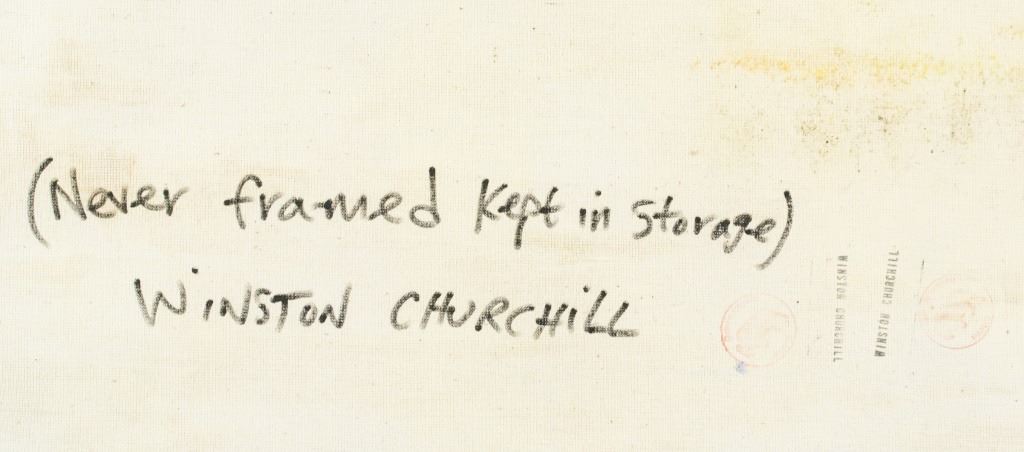 (Never framed Kept in Storage)
WINSTON CHURCHILL
WINSTON CHURCHILL
WINSTON CHURCHILL